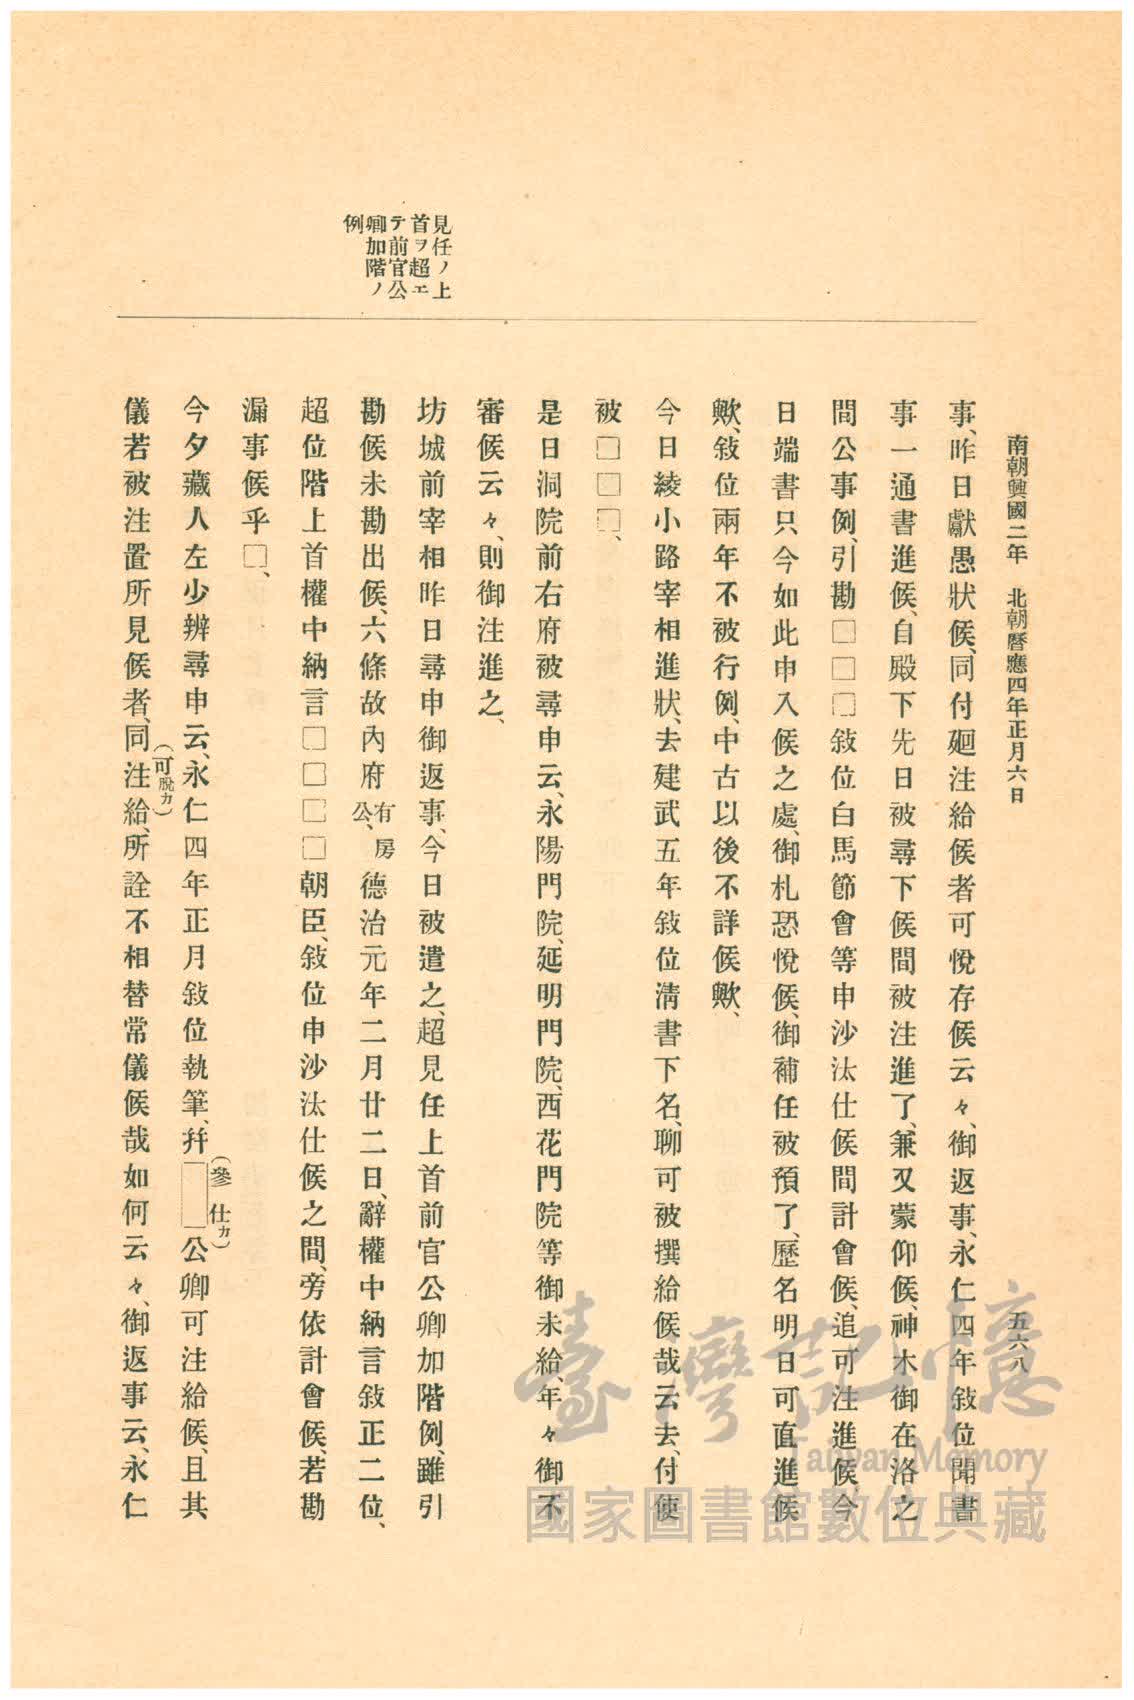 南朝興國二年　北朝曆應四年正月六日　五六八
見任ノ上
首ヲ超エ
テ前官公
卿加階ノ
例
事、昨日獻愚狀候、同付廻注給候者可悅存候云々、御返事、永仁四年敍位聞書
事一通書進候、自殿下先日被尋下候間被注進了、兼又蒙仰候、神木御在洛之
間公事例、引勘□□□敍位白馬節會等申沙汰仕候間計會候、追可注進候今
日端書只今如此申入候之處、御札恐悅候、御補任被預了、歷名明日可直進候
歟、敍位兩年不被行例、中古以後不詳候歟、
今日綾小路宰相進狀、去建武五年敍位淸書下名、聊可被撰給候哉云去、付使
被□□□、
是日洞院前右府被尋申云、永陽門院、延明門院、西花門院等御未給、年々御不
審候云々、則御注進之、
坊城前宰相昨日尋申御返事、今日被遣之、超見任上首前官公卿加階例、雖引
勘候未勘出候、六條故內府有房公、德治元年二月廿二日、辭權中納言敍正二位、
超位階上首權中納言□□□□朝臣、敍位申沙汰仕候之間、旁依計會候、若勘
漏事候乎□、
今夕藏人左少辨尋申云、永仁四年正月敍位執筆、幷□（參仕カ）公卿可注給候、且其
儀若被注置所見候者、同（可脫カ）注給、所詮不相替常儀候哉如何云々、御返事云、永仁
臺灣記憶
Taiwan Memory
國家圖書館數位典藏